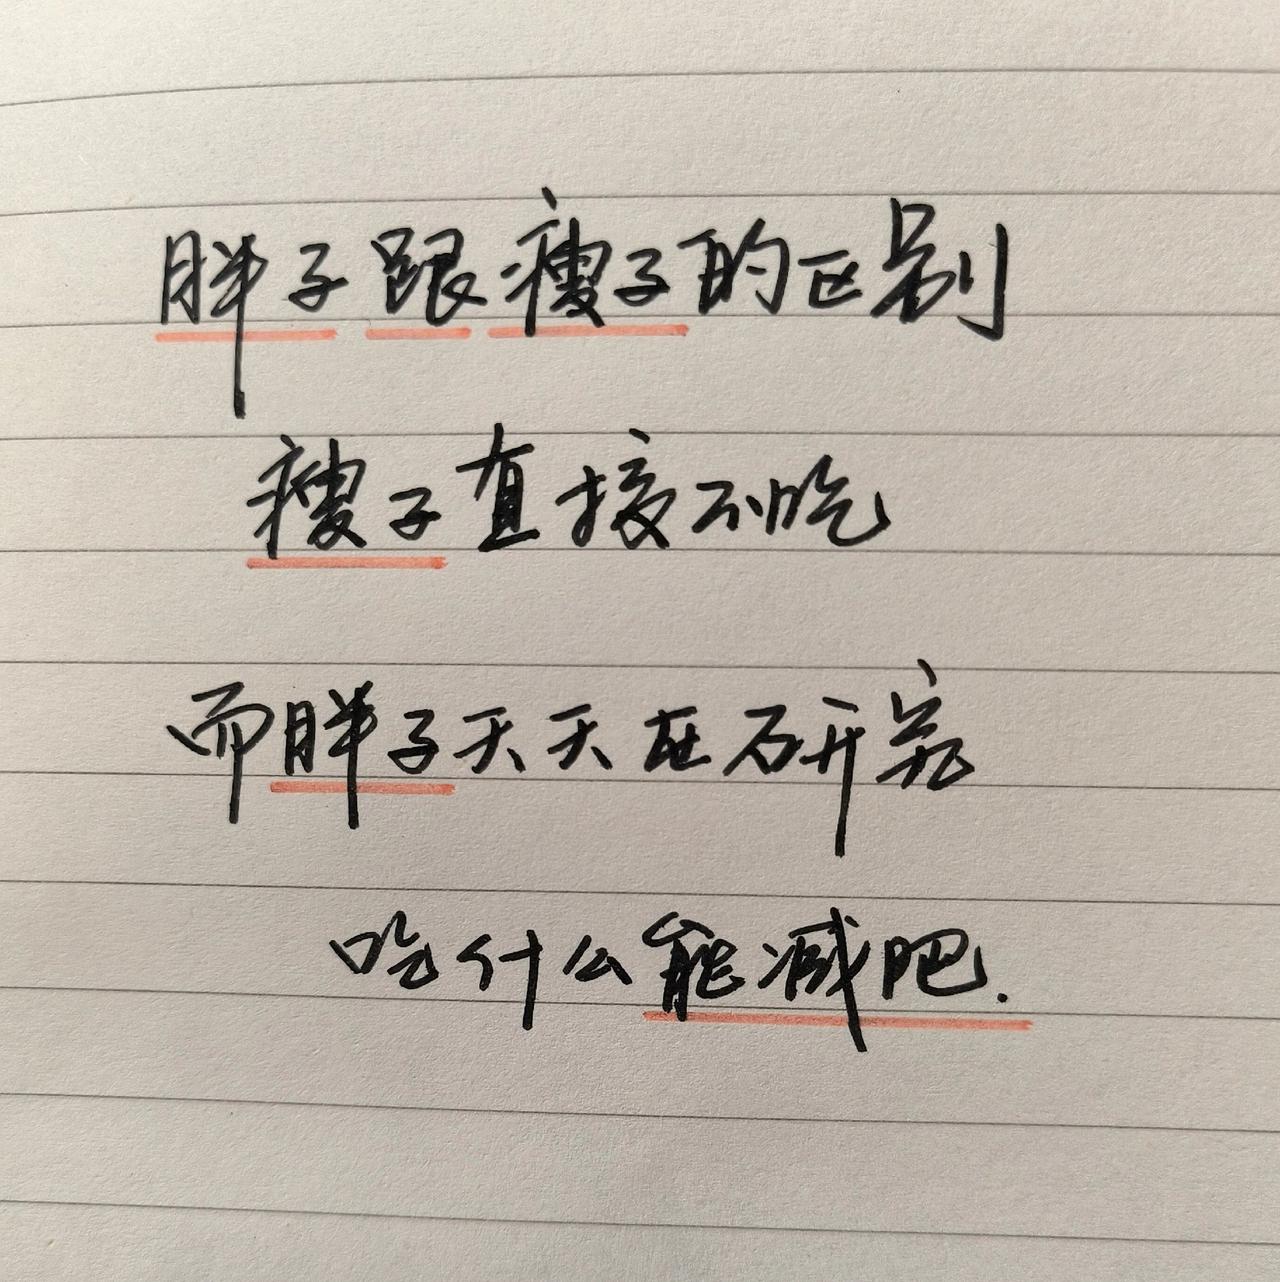 胖子跟瘦子的区别
瘦子直接不吃
而胖子天天在研究
吃什么能减吧.